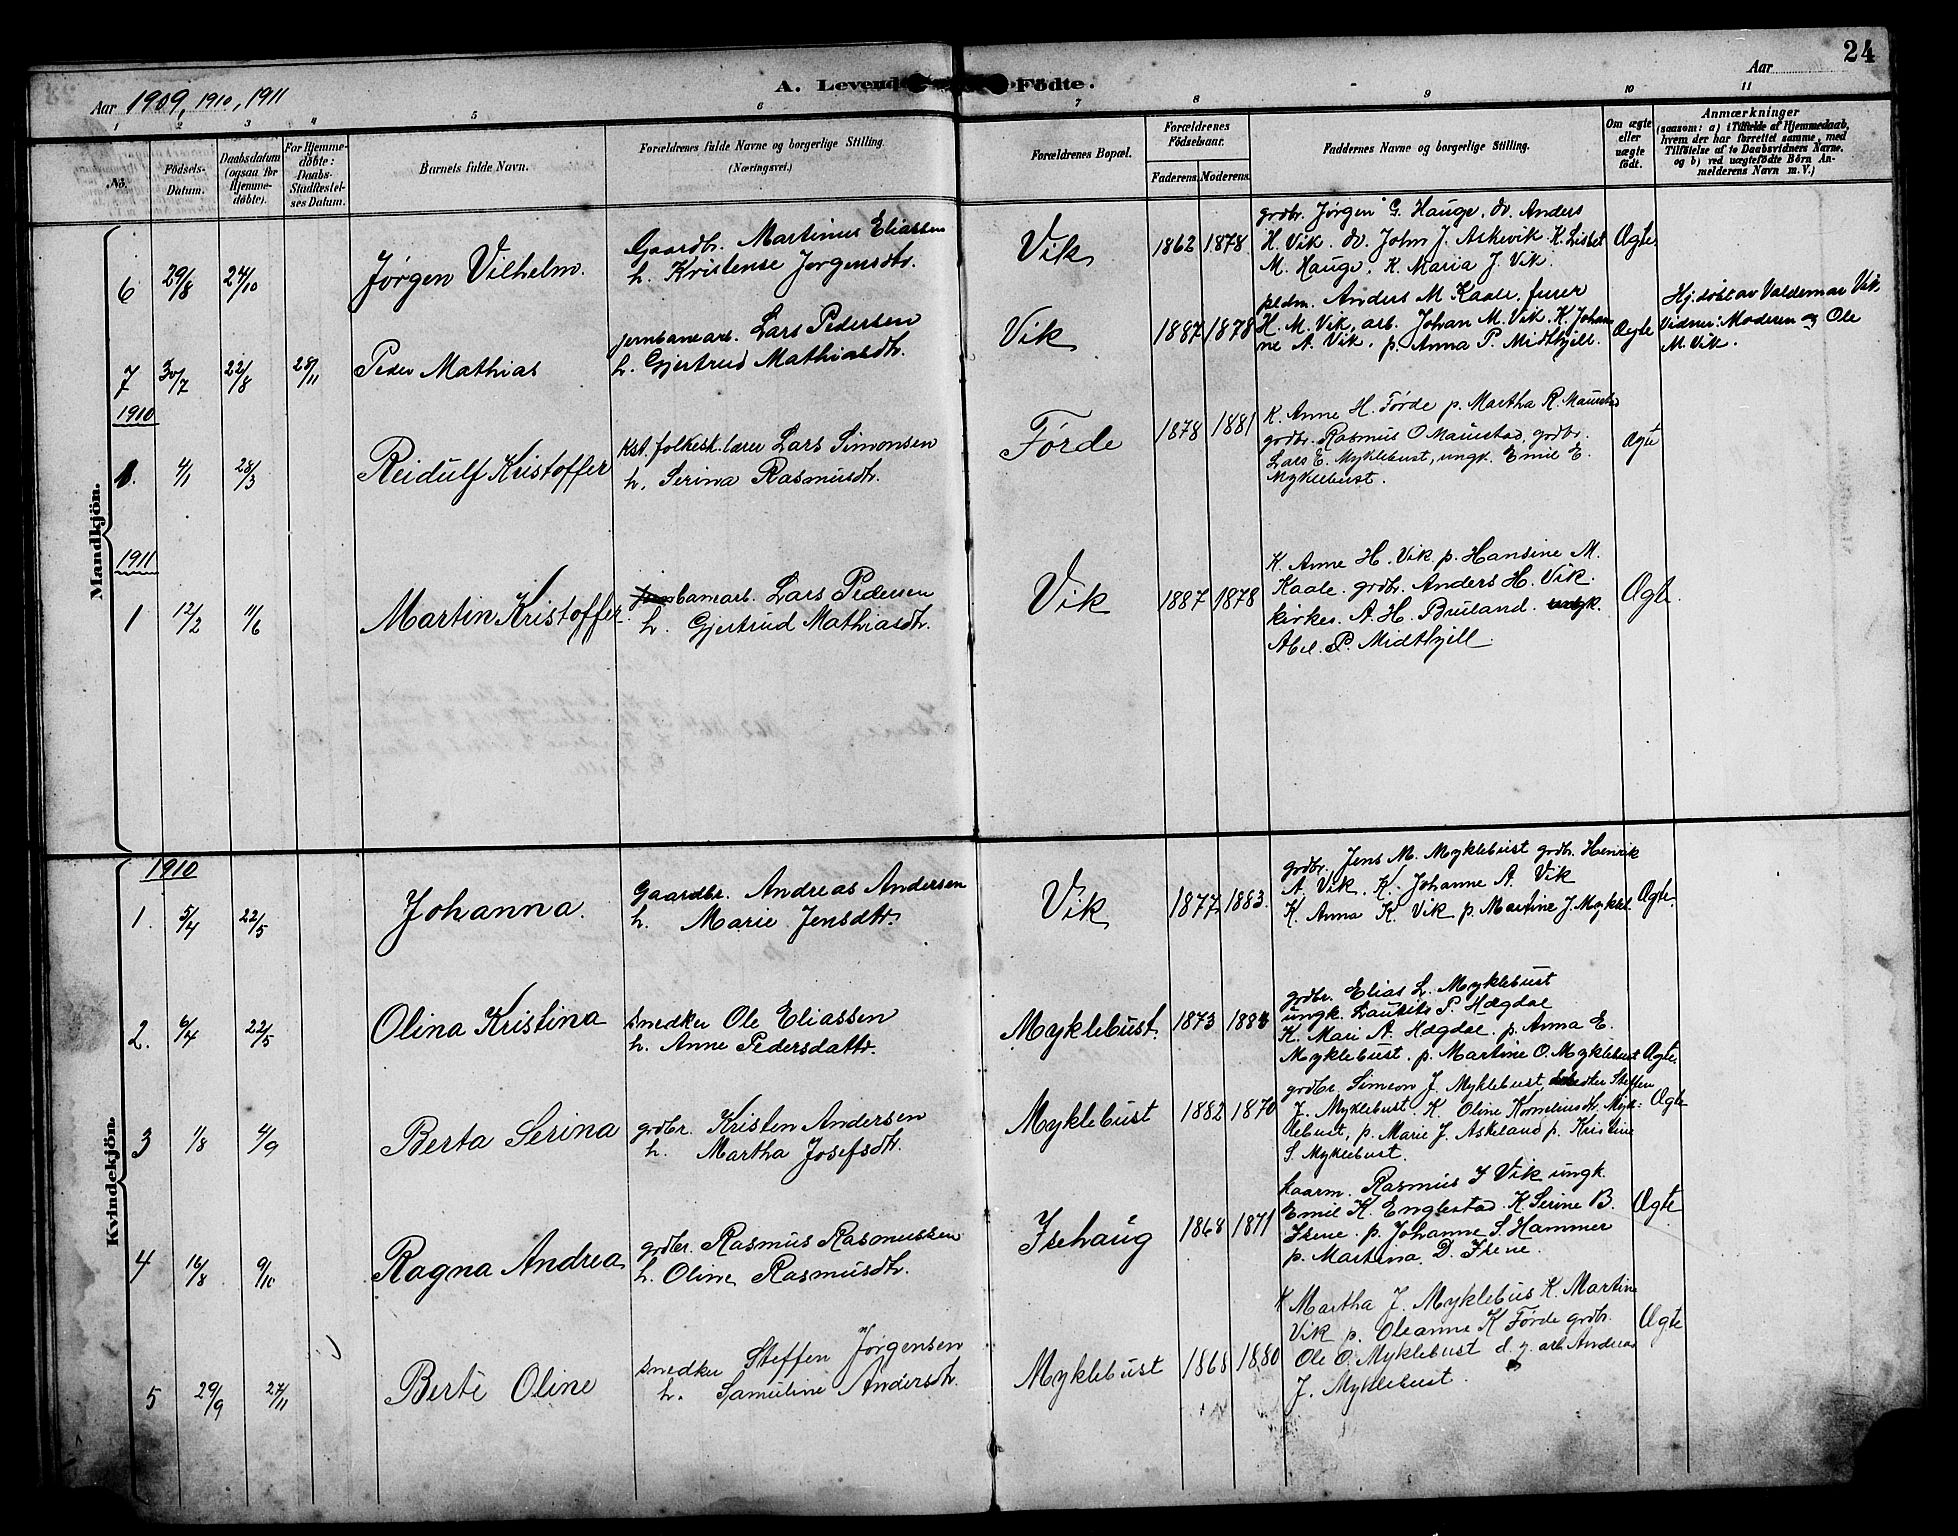 24
Aar 1909, 1910, 1911
A. Levende Födte.
Aar
1 2 3 4 5 6 7 8 9 10 11
No.
Födsels-
Datum.
Daabsdatum
(ogsaa for
Hjemme-
døbte).
For Hjemme-
døbte:
Daabs-
Stadfæstel-
ses Datum.
Barnets fulde Navn.
Forældrenes fulde Navne og borgerlige Stilling.
(Næringsvei.)
Forældrenes Bopæl.
Forældrenes
Födselsaar.
Faderens. Moderens.
Faddernes Navne og borgerlige Stilling.
Om ægte
eller
uægte
födt.
Anmærkninger
(saasom: a) i Tilfælde af Hjemmedaab,
hvem der har forrettet samme, med
Tilföielse af to Daabsvidners Navne.
og b) ved uægtefödte Börn An-
melderens Navn m. V.)
Mandkjön.
6 29/8 24/10 Jørgen Vilhelm.
Gaardb. Martinus Eliassen
h. Kristense Jørgensdtr.
Vik 1862 1878
grdbr. Jørgen G. Hauge, do. Anders
H. Vik. do. John J. Askevik K. Lisbet
M. Hauge, K. Maria J. Vik.
Ægte
7 30/7 22/8 28/11 Peder Mathias
jernbanearb. Lars Pedersen
h. Gjertrud Mathiasdtr.
Vik 1887 1878
pldm. Anders M Kaale, furer
H. M. Vik, arb. Johan M. Vik. K. Johan
ne A. Vik, p. Anna P. Midthjell.
Ægte
Hj. døbt av Valdemar Vik.
Vidner: Moderen og Ole
M. Vik.
1910
1. 4/1 28/3 Reidulf Kristoffer
Kst. folkesk. lærer Lars Simonsen
h. Serina Rasmusdtr.
Førde 1878 1881
K. Anne H. Førde p. Martha R. Maurstad
grdbr. Rasmus O Maurstad, grdbr.
Lars E. Myklebust, ungk. Emil E.
Myklebust.
Ægte
1911
1 12/2 11/6 Martin Kristoffer
banearb. Lars Pedersen
h. Gjertrud Mathiasdtr.
Vik 1887 1878
K. Anne H. Vik p. Hansine M.
Kaale. grdbr. Anders H. Vik.
kirkes. A. H. Breiland. ungk.
Abel. P. Midthjell.
Ægte.
Kvindekjön.
1910
1. 5/4 22/5 Johanna.
Gaardbr. Andreas Andersen
h. Marie Jensdtr.
Vik 1877 1883.
grdbr. Jens M. Myklebust grdbr. Henrik
A. Vik. K. Johanne A. Vik
K. Anna K. Vik p. Martine J. Mykleb.
Ægte
2. 6/4 22/5 Olina Kristina
Snedker Ole Eliassen
h. Anne Pedersdattr.
Myklebust. 1873
grdbr. Elias L. Myklebust
ungk. Lauritz P. Hægdal
K. Mari A. Hægdal. p. Anna E.
Myklebust. p. Martine O. Myklebust
Ægte
3 1/8 4/9 Berta Serina
grdbr. Kristen Andersen
h. Martha Josefsdtr.
Myklebust 1882 1870
grdbr. Simeon J. Myklebust, Steffen
J. Myklebust. K. Oline Korneliusdtr. Myk-
lebust, p. Marie J. Askeland p. Kristine
S. Myklebust.
Ægte
4 16/8 9/10 Ragna Andrea
grdbr. Rasmus Rasmussen
h. Oline Rasmusdtr.
Isehaug 1868 1871
haarm. Rasmus I Vik ungk.
Emil K. Englestad. K. Serine B.
Isene. p. Johanne S. Hammer
p. Martina. D. Isene.
Ægte
5 29/9 27/11 Berte Oline
Snedker Steffen Jørgensen
h. Samueline Andersdtr.
Myklebust 1868 1880
K Martha J. Myklebus K. Martine
Vik p. Oleanne K Førde grdbr.
Ole O. Myklebust d. y. arb Andreas
J. Myklebust.
Ægte